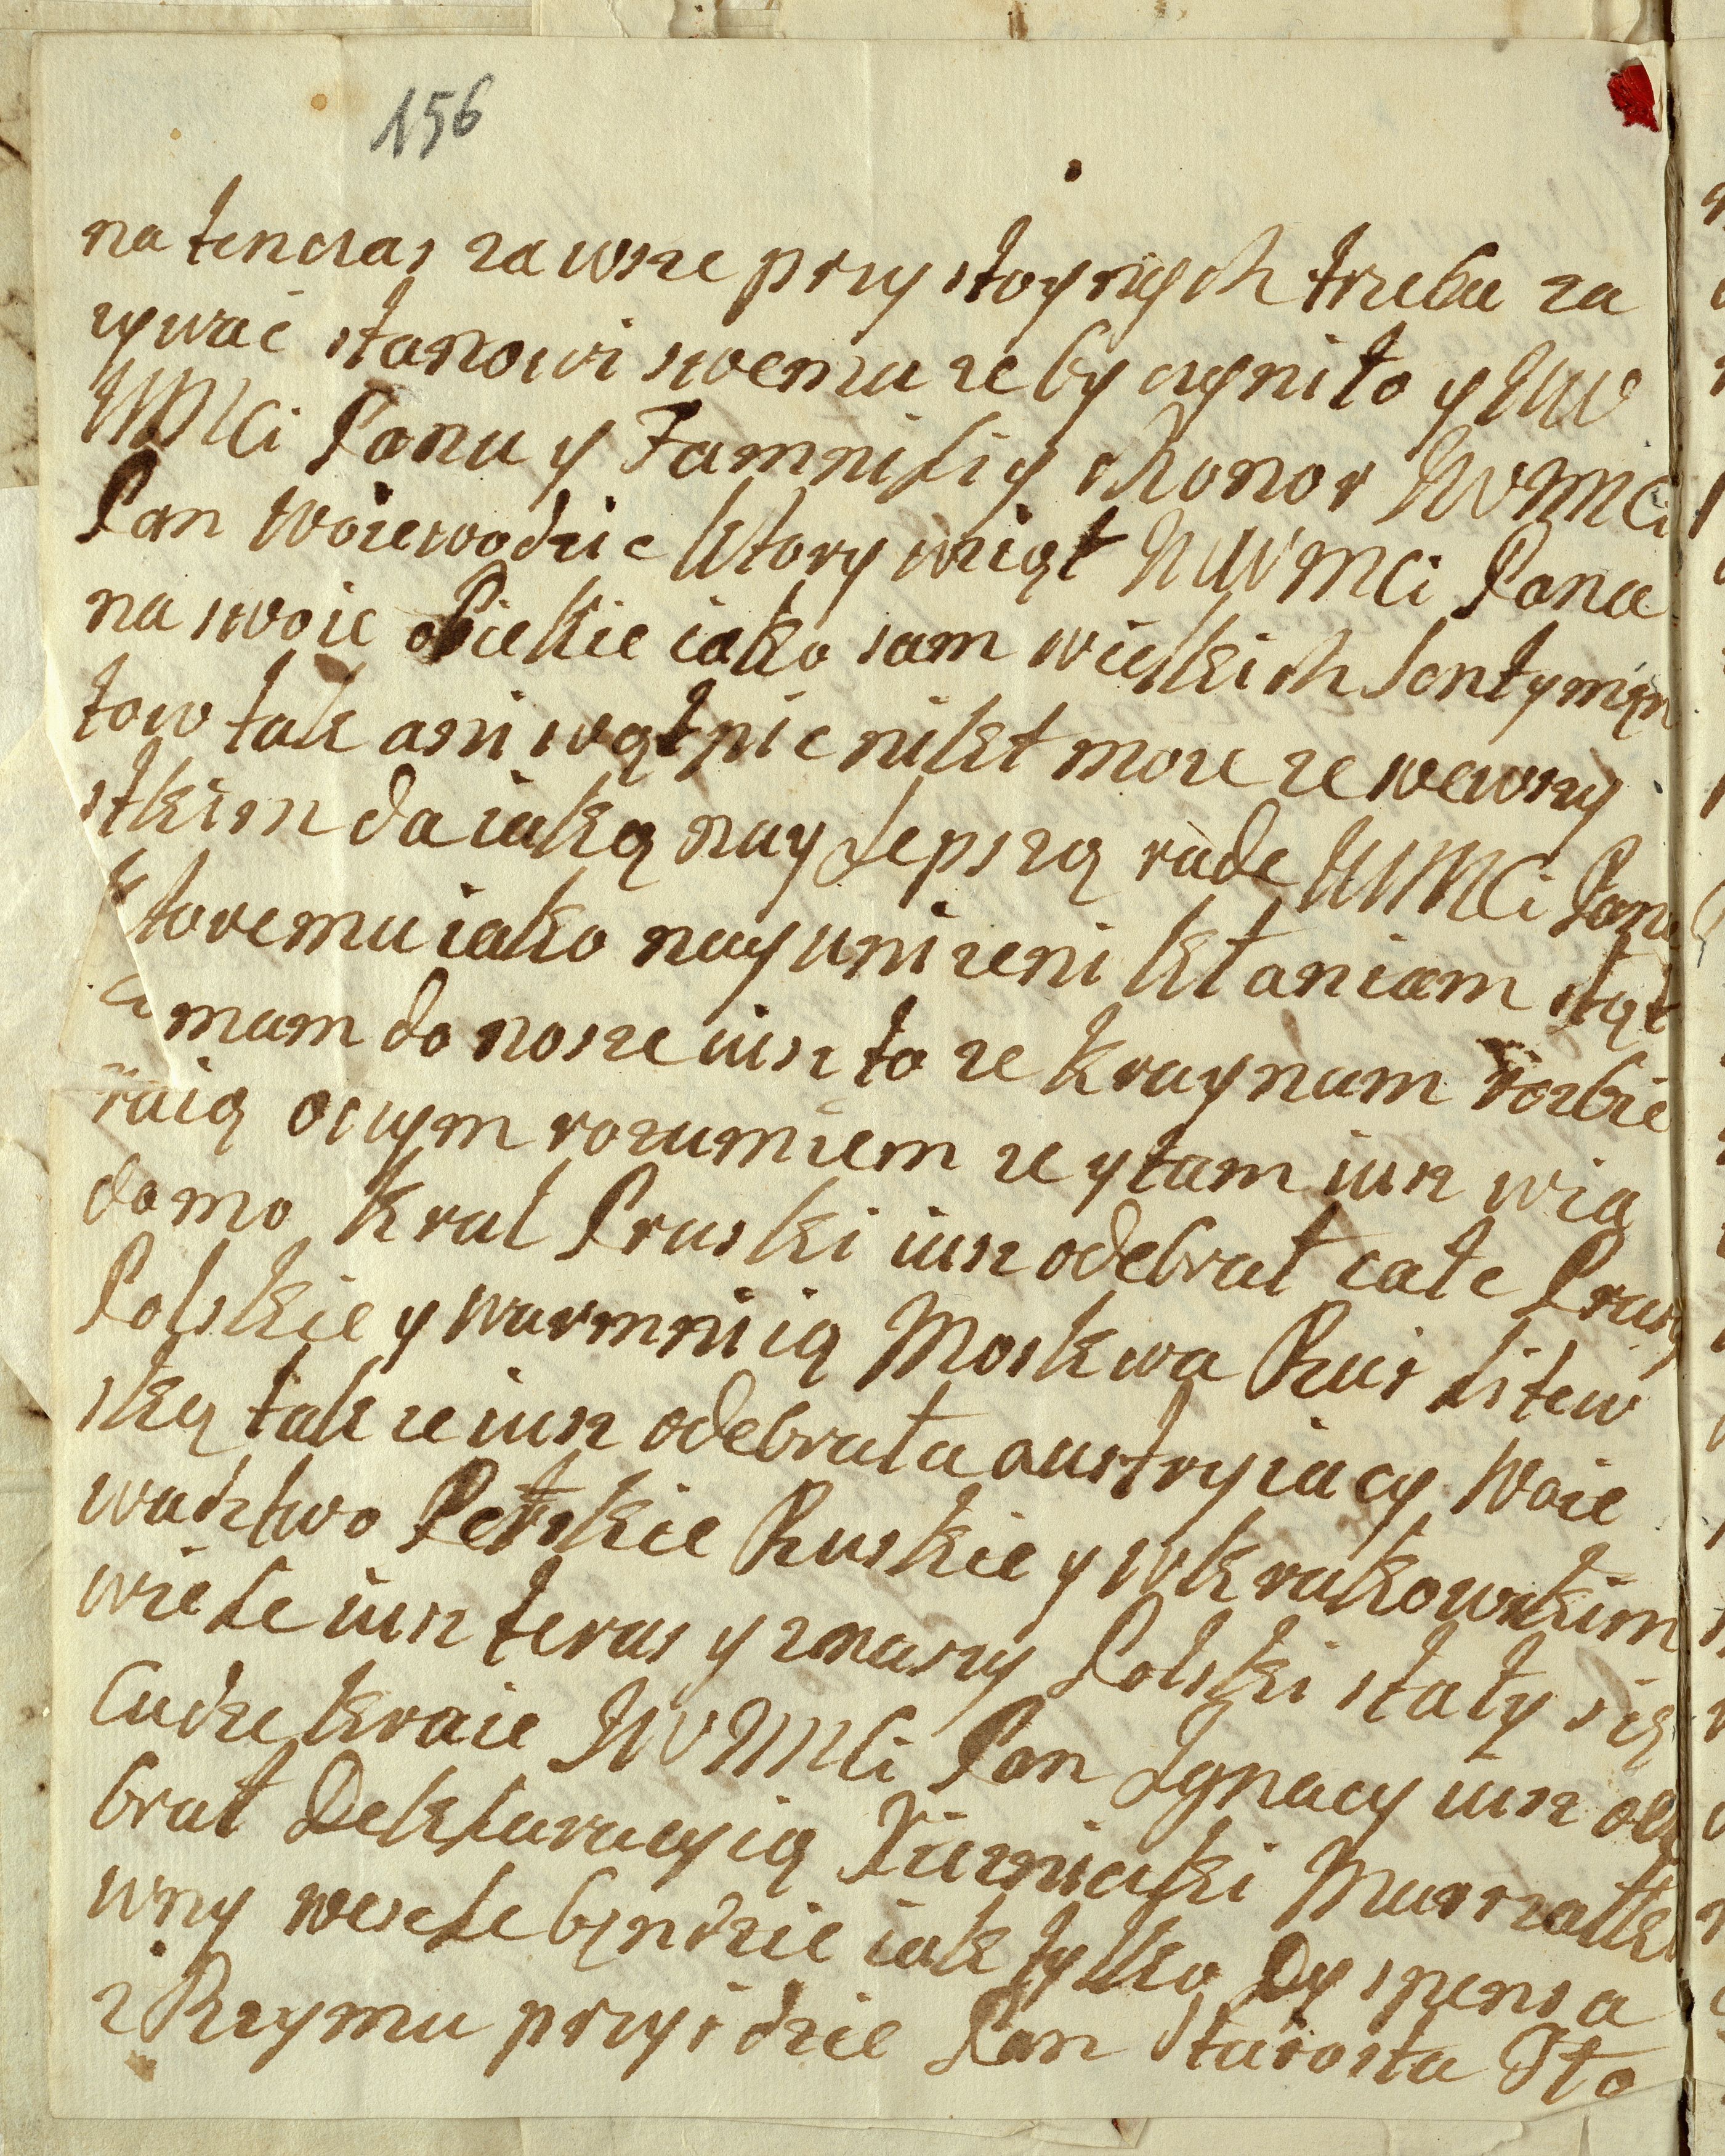 156
na tenczas zawsze przystoynych trzeba za
zywać stanowi swemu ze by czyniło y JWW
WMCi Panu y Famniliy chonor JWMCi
Pan Woiewodzic ktory wziął JWWMCi Pana
na swoie oPiekie iako sam wielkich Sentymęn
tow tak ani wątpic nikt moze ze wewszy
stkim da iaką nay Lepszą rade WWMCi Panu
ktoremu iako nayunizeni kłaniam stąt
a mam do nosze iusz to ze kray nam rozbie
raią oczym rozumiem ze y tam iusz wia
domo kral Pruski iusz odebrał całe Prusy
Polskie y warmnią Moskwa Ruś Litew
ską takze iusz odebrała austryiacy Woie
wudztwo Bełskie Ruskie y w krakowskim
wiele iusz teras y znaszy Polski stały się
Cudze kraie JWWMCi Pan Ignacy iusz ode
brał Deklaracyią Marszałko
wny wesele będzie iak tylko Dyspensa
z Rzymu przyidzie Pan Starosta Sto